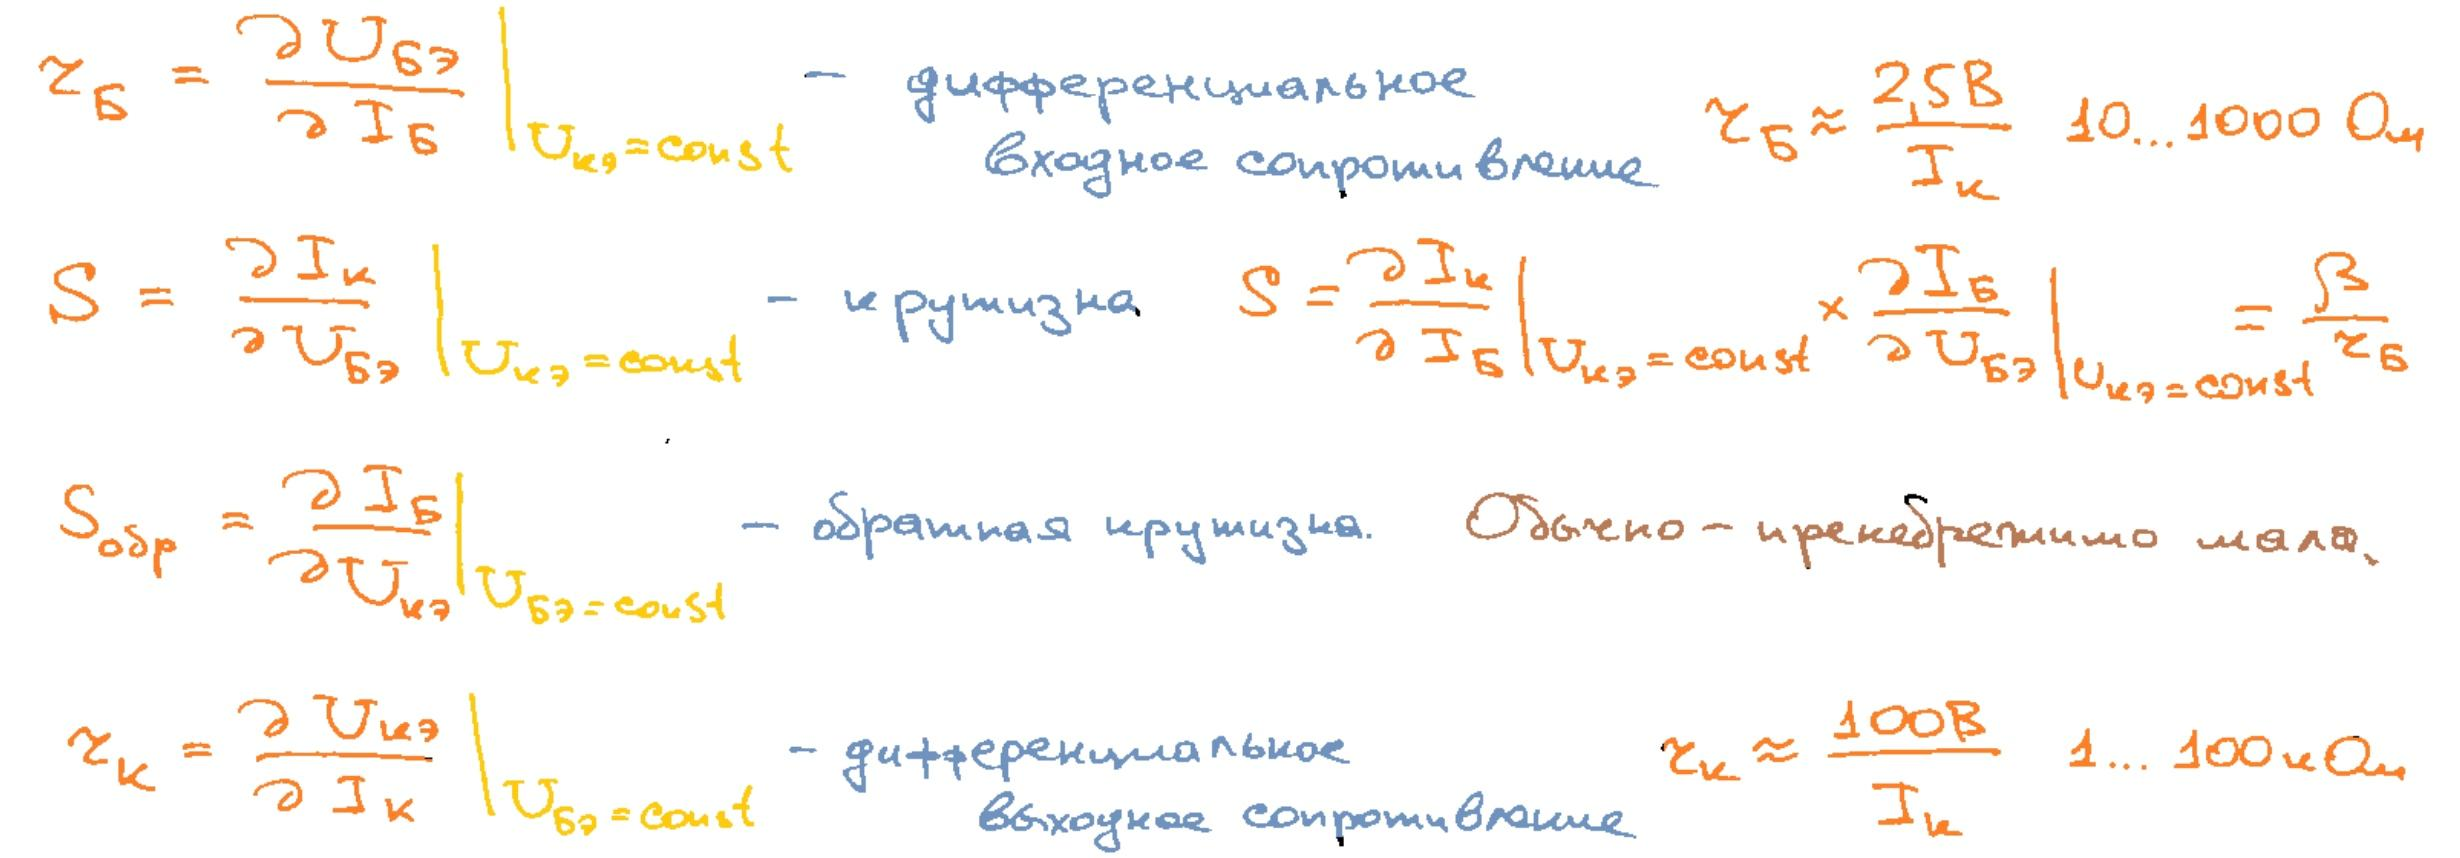 r_Б = ∂U_БЭ / ∂I_Б |U_кэ = const – дифференциальное входное сопротивление r_Б ≈ 2,5В / I_к 10...1000 Ом
S = ∂I_к / ∂U_БЭ |U_кэ = const – крутизна S = ∂I_к / ∂I_Б |U_кэ = const × ∂I_Б / ∂U_БЭ |U_кэ = const = β / r_Б
S_обр = ∂I_Б / ∂U_кэ |U_БЭ = const – обратная крутизна. Обычно – пренебрежимо мала.
r_к = ∂U_кэ / ∂I_к |U_БЭ = const – дифференциальное выходное сопротивление r_к ≈ 100В / I_к 1...100 кОм